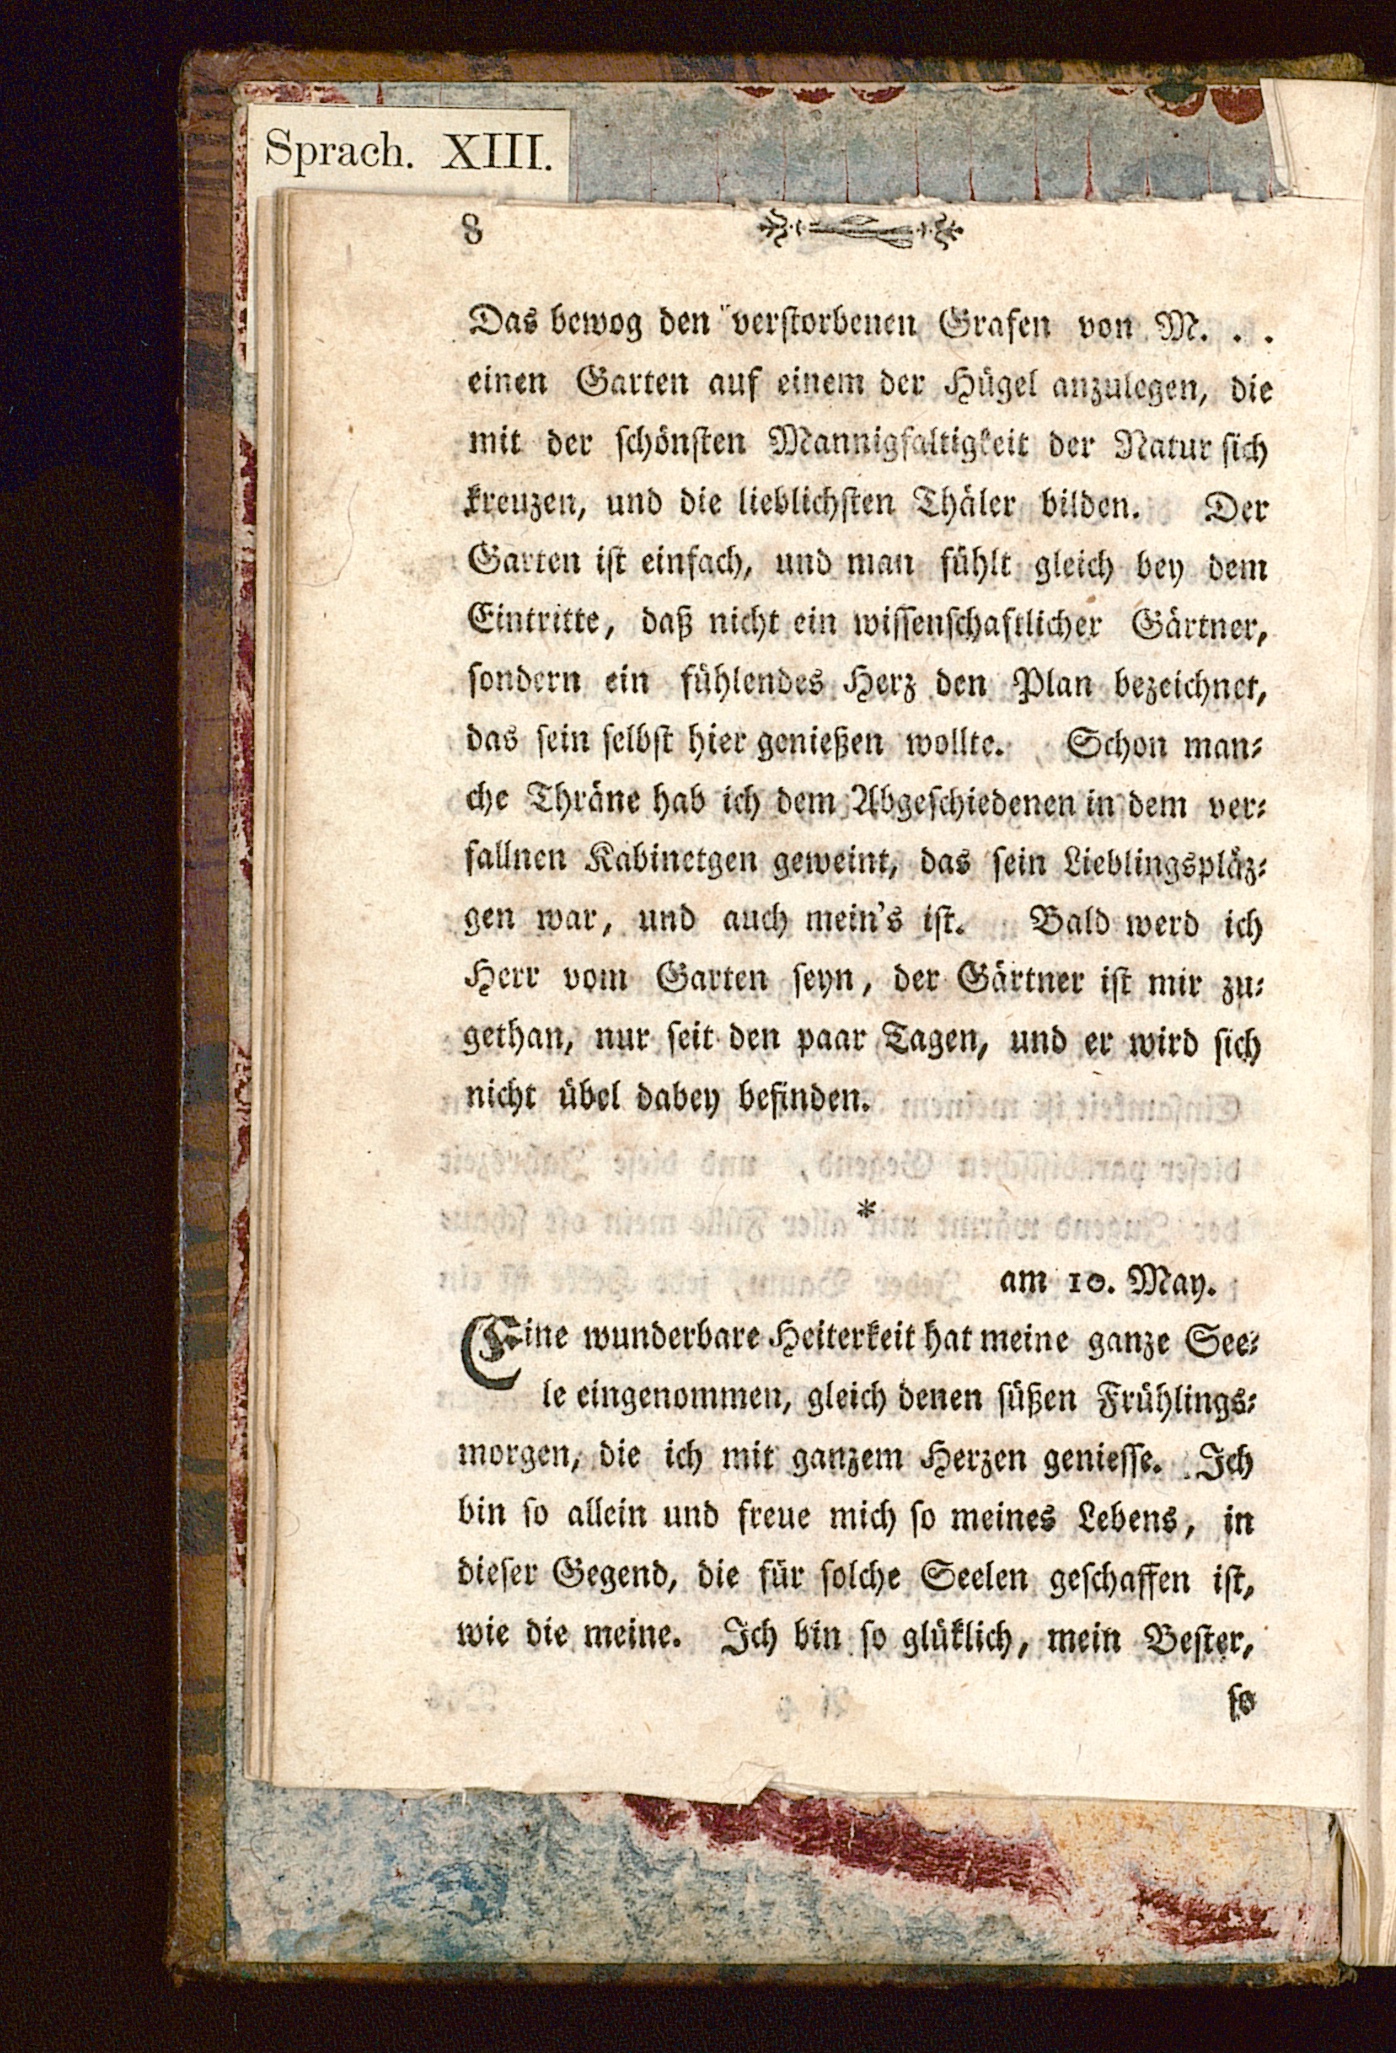 Sprach. XIII.
8
Das bewog den verſtorbenen Grafen von M. . .
einen Garten auf einem der Hügel anzulegen, die
mit der ſchönſten Mannigfaltigkeit der Natur ſich
kreuzen, und die lieblichſten Thäler bilden. Der
Garten iſt einfach, und man fühlt gleich bey dem
Eintritte, daß nicht ein wiſſenſchaftlicher Gärtner,
ſondern ein fühlendes Herz den Plan bezeichnet,
das ſein ſelbſt hier genießen wollte. Schon man⸗
che Thräne hab ich dem Abgeſchiedenen in dem ver⸗
fallnen Kabinetgen geweint, das ſein Lieblingspläz⸗
gen war, und auch mein's iſt. Bald werd ich
Herr vom Garten ſeyn, der Gärtner iſt mir zu⸗
gethan, nur ſeit den paar Tagen, und er wird ſich
nicht übel dabey befinden.
*
am 10. May.
Eine wunderbare Heiterkeit hat meine ganze See⸗
le eingenommen, gleich denen ſüßen Frühlings⸗
morgen, die ich mit ganzem Herzen genieſſe. Ich
bin ſo allein und freue mich ſo meines Lebens, in
dieſer Gegend, die für ſolche Seelen geſchaffen iſt,
wie die meine. Ich bin ſo glüklich, mein Beſter,
ſo